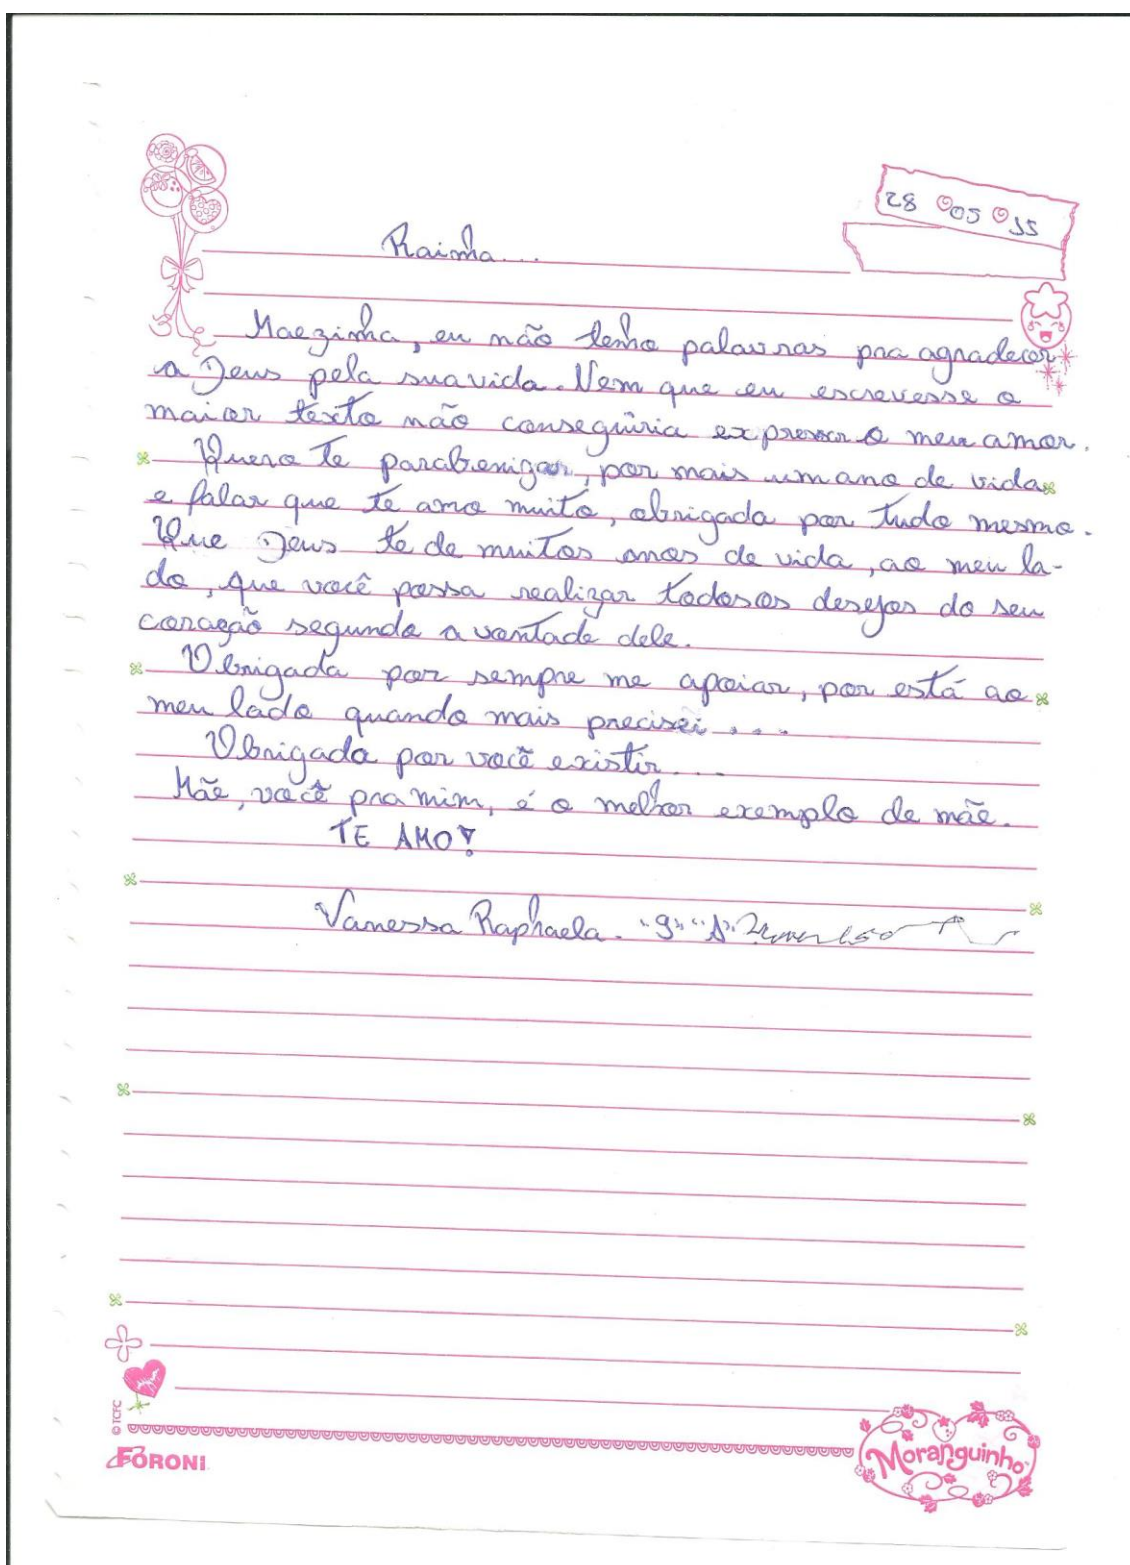 28 05 15
Rainha...
Maezinha, eu não tenho palavras pra agradecer
a Deus pela sua vida. Nem que eu escrevesse o
maior texto não conseguiria expressar o meu amor.
Quero te parabenizar, por mais um ano de vida
e falar que te amo muito, obrigada por tudo mesmo.
Que Deus te de muitos anos de vida, ao meu la-
do, que você possa realizar todos os desejos do seu
coração segundo a vontade dele.
Obrigada por sempre me apoiar, por está ao
meu lado quando mais precisei...
Obrigada por você existir...
Mãe, você pra mim, é o melhor exemplo de mãe.
TE AMO!
Vanessa Raphaela. "9" "A"
© TCFC
FORONI
Moranguinho